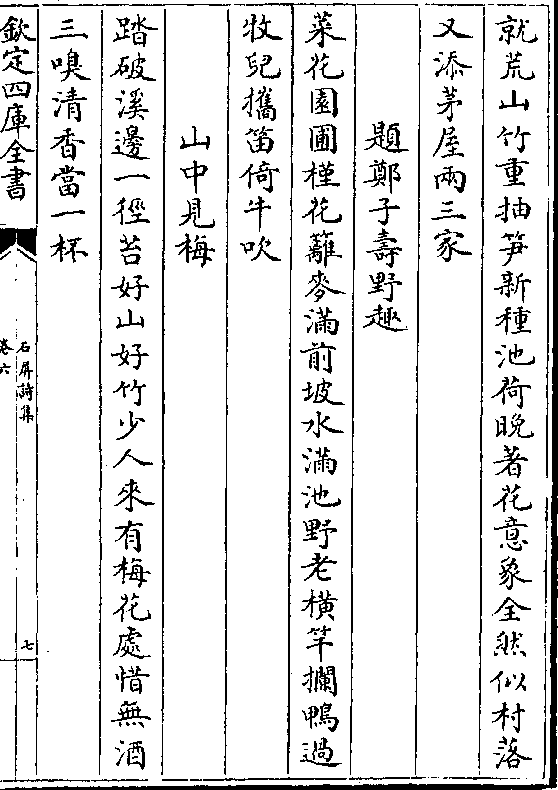 就荒山竹重抽笋新種池荷晚著花意象全然似村落
又添茅屋兩三家
題鄭子壽野趣
菜花園圃槿花籬麥滿前坡水滿池野老橫竿攔鴨過
牧兒攜笛倚牛吹
山中見梅
踏破溪邊一徑苔好山好竹少人來有梅花處惜無酒
三嗅清香當一杯
欽定四庫全書
石屏詩集
卷六
七